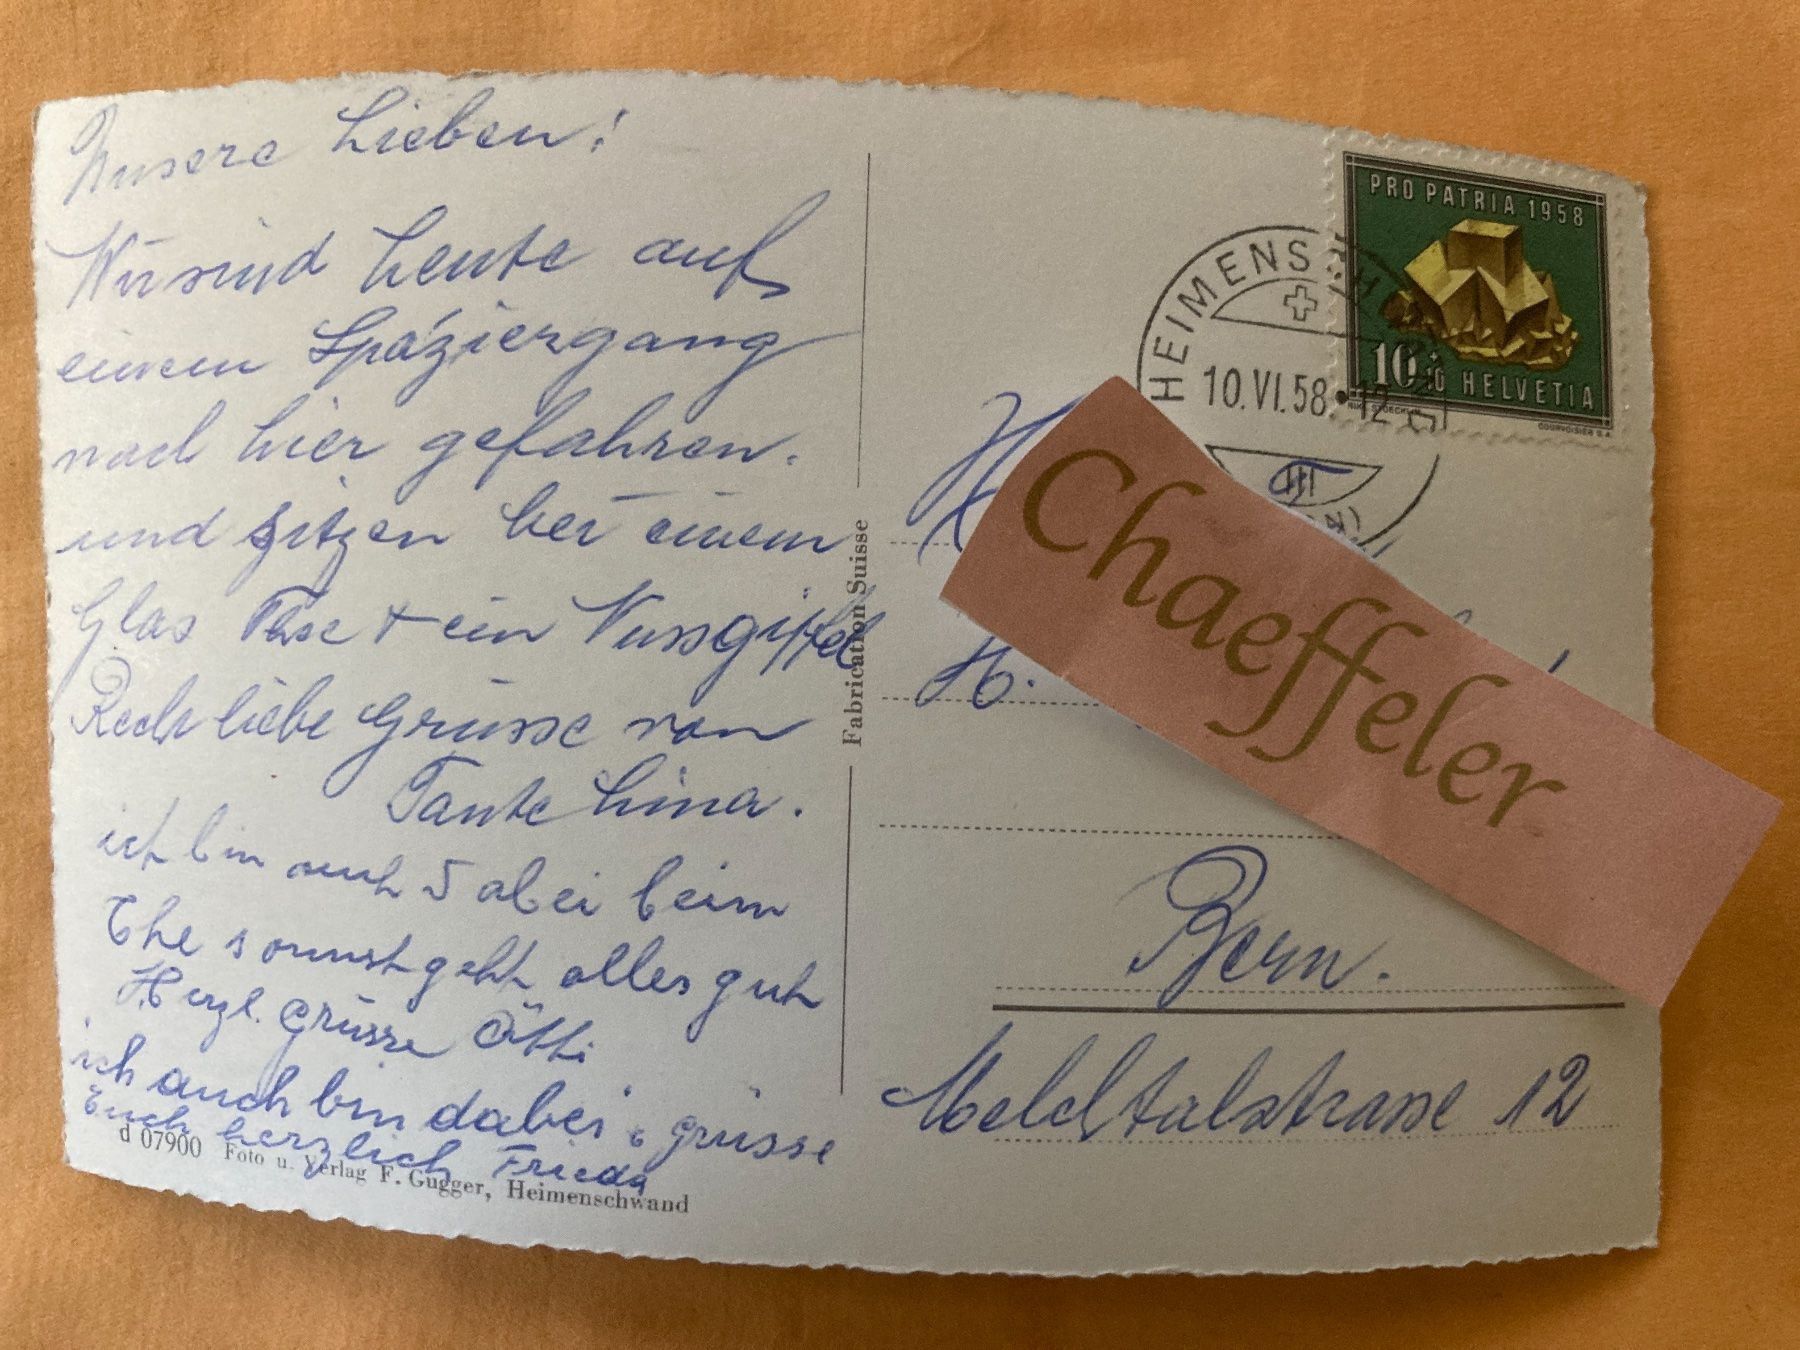 Unsere Lieben!
Wir sind heute auf
einem Spaziergang
nach hier gefahren.
und sitzen bei einem
Glas Thee + ein Nussgipfel
Recht liebe Grüsse von
Tante Lina.
ich bin auch dabei beim
The sonnst geht alles gut
Herzl. Grüsse Ätti
ich auch bin dabei, grüsse
Euch herzlich Frieda
d 07900 Foto u. Verlag F. Gugger, Heimenschwand
Fabrication Suisse
PRO PATRIA 1958
10+10 HELVETIA
COURVOISIER S.A.
HEIMENSCHWAND
10.VI.58.-12
H.
Chaeffeler
Bern.
Melchtalstrasse 12